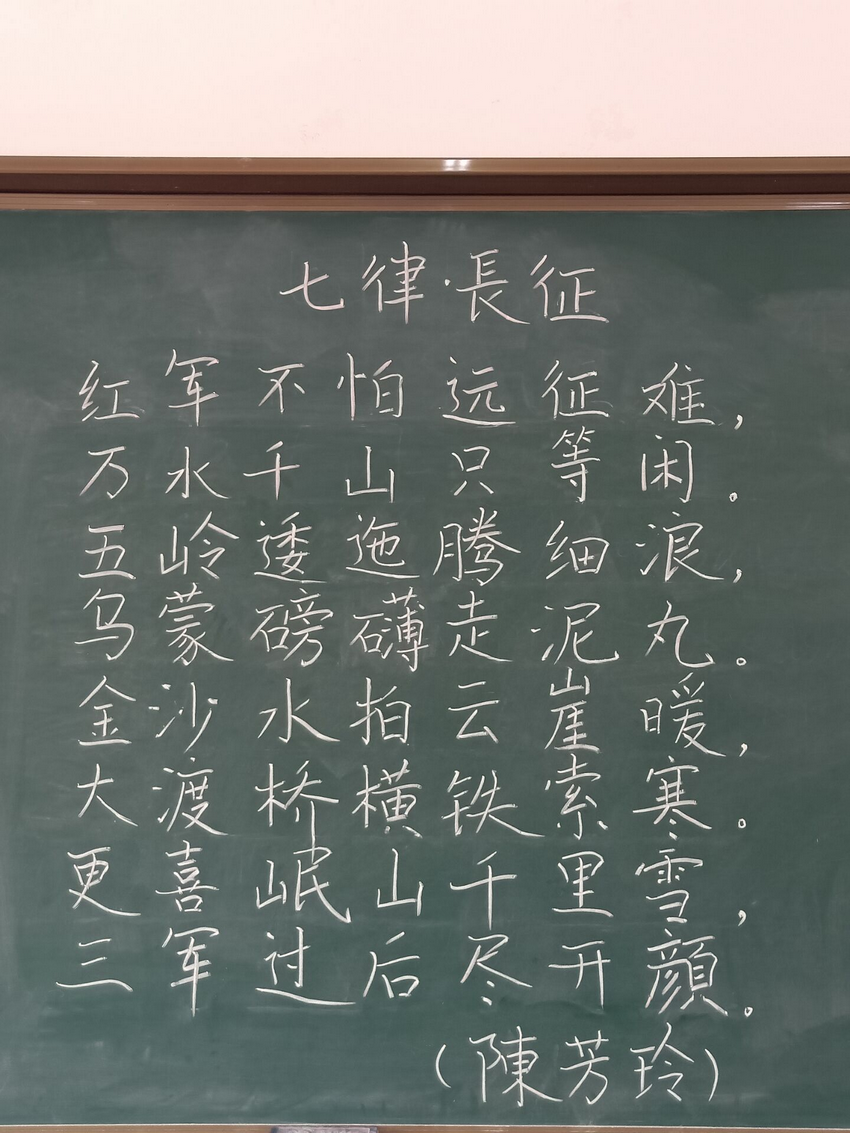 七律·長征
红军不怕远征难，
万水千山只等闲。
五岭逶迤腾细浪，
乌蒙磅礴走泥丸。
金沙水拍云崖暖，
大渡桥横铁索寒。
更喜岷山千里雪，
三军过后尽开顔。
（陳芳玲）